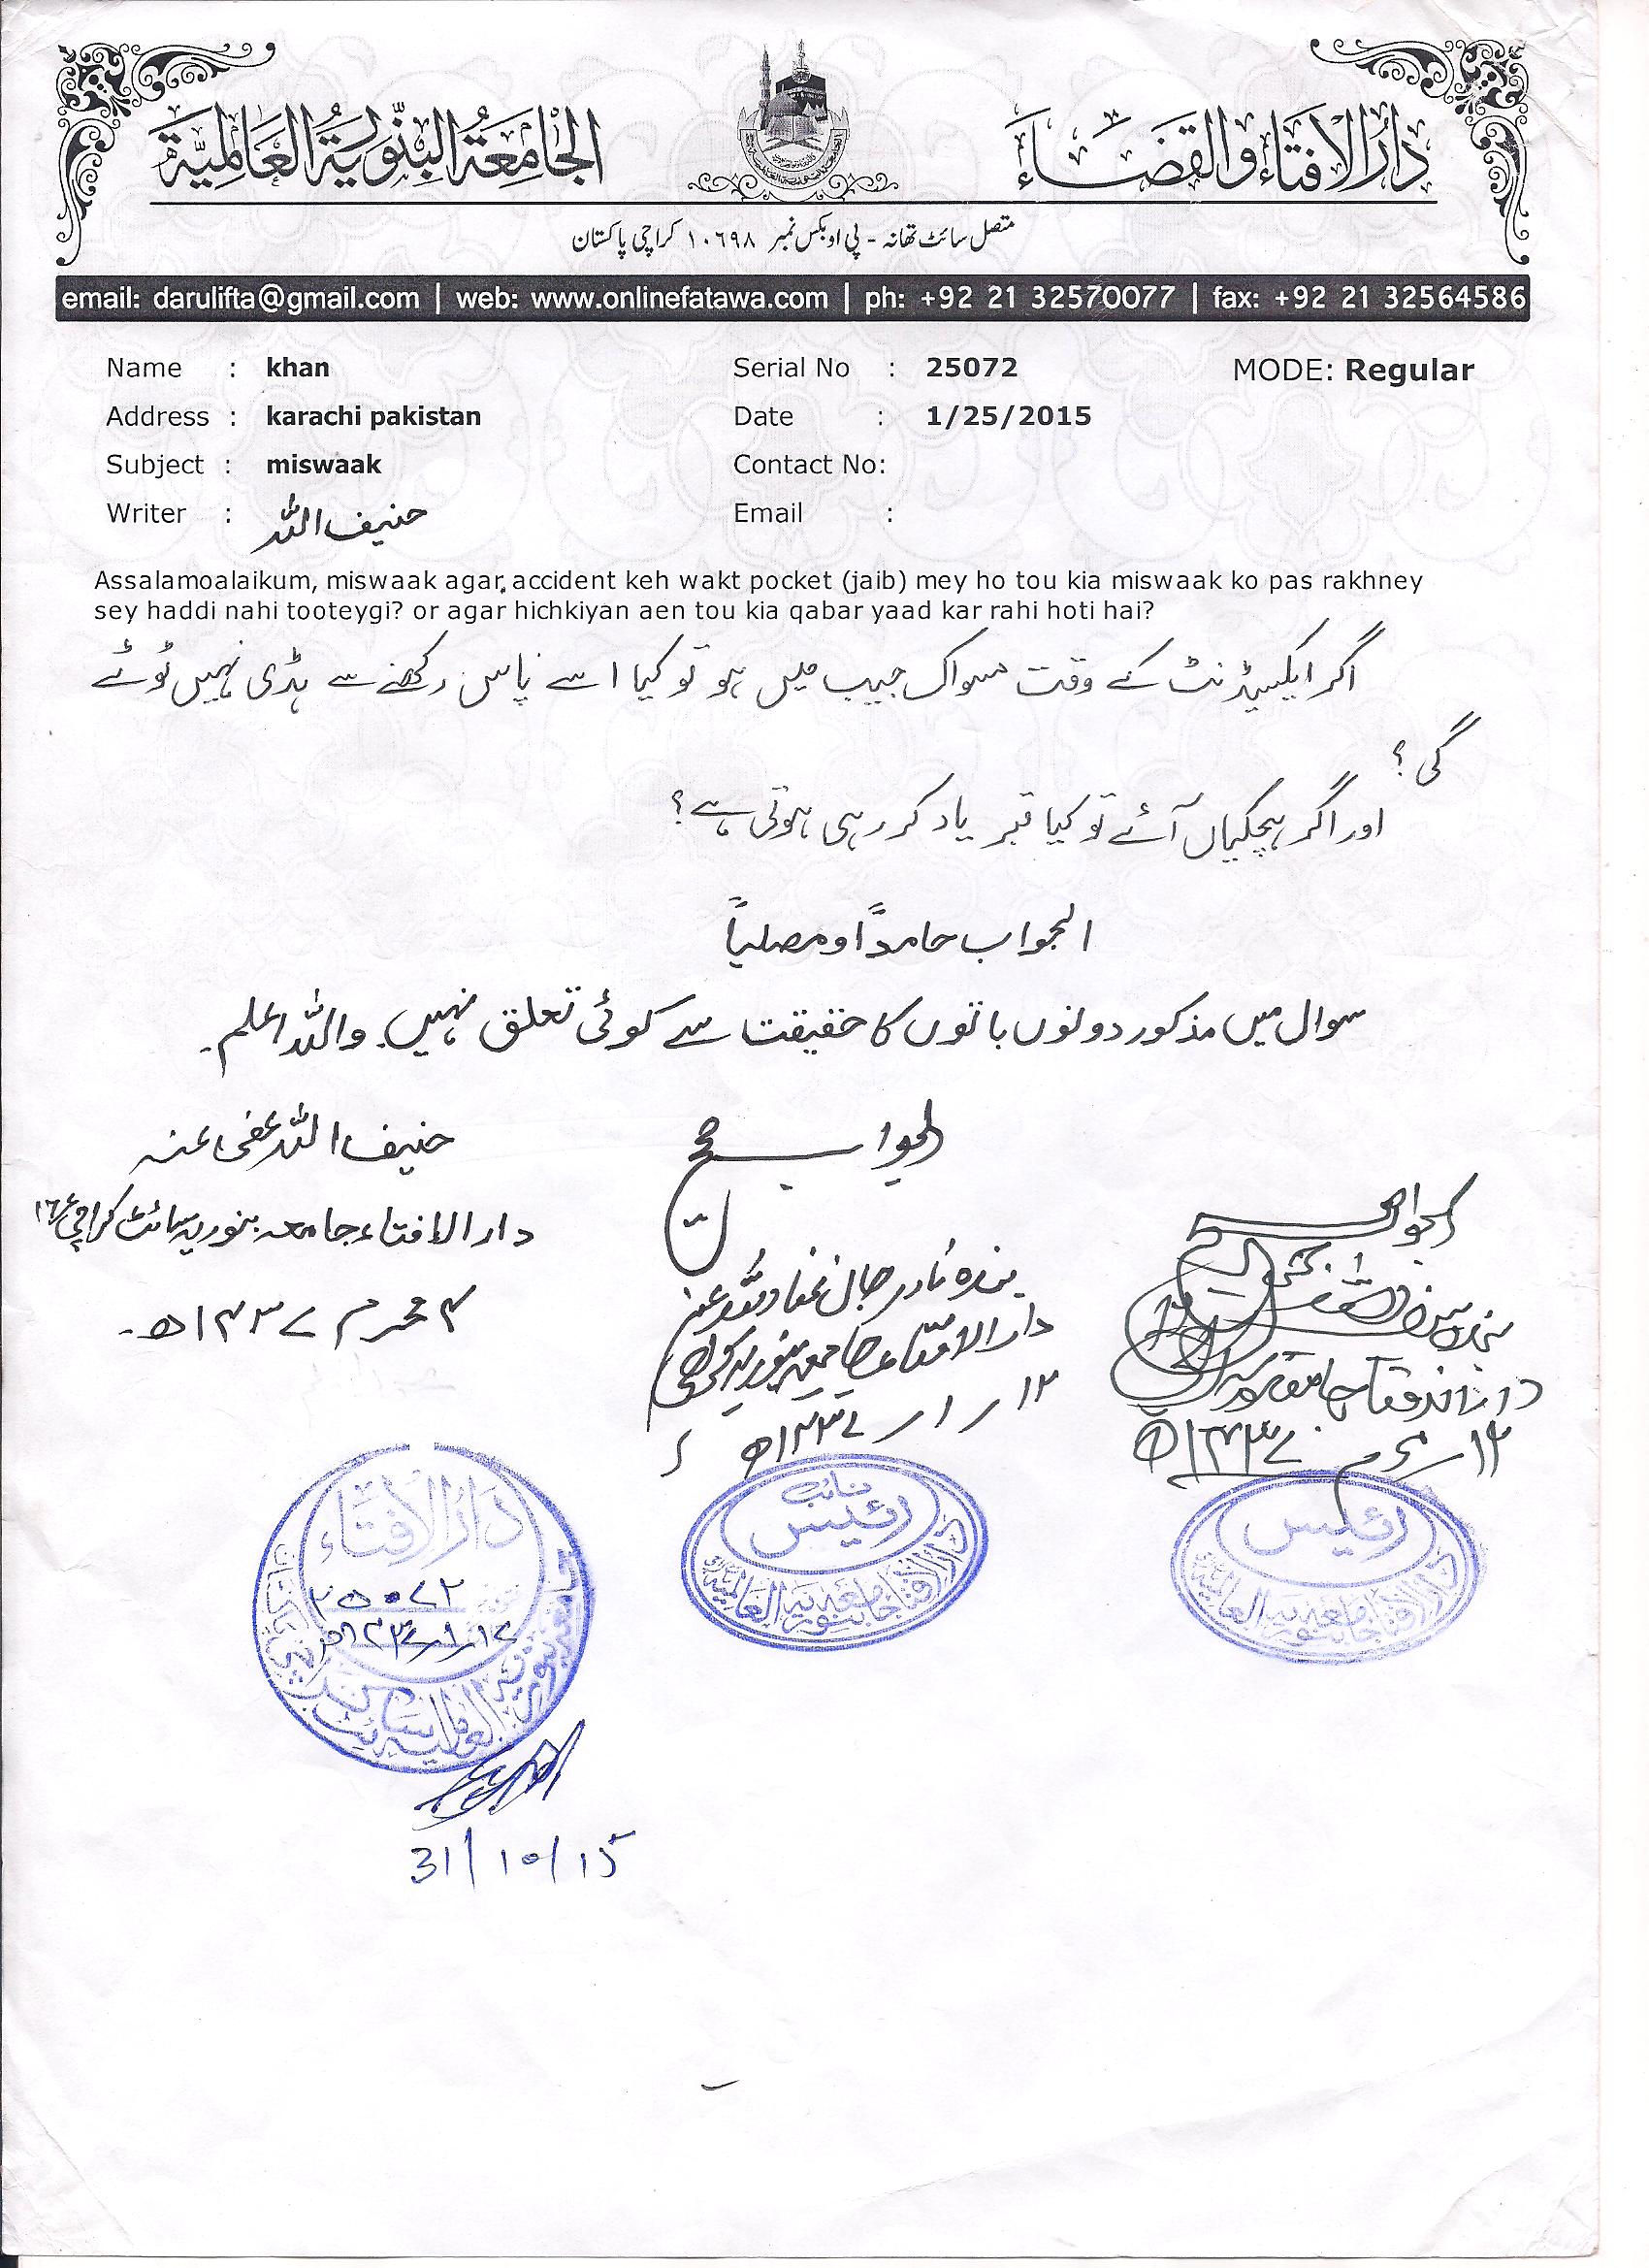 دَارُ الاِفتَاء وَالقَضَاء
الجَامِعَةُ البِنّورِيَةُ العَالَمِيَّة
متصل سائٹ تھانہ - پی او بکس نمبر ١٠٦٩٨ کراچی پاکستان
email: darulifta@gmail.com | web: www.onlinefatawa.com | ph: +92 21 32570077 | fax: +92 21 32564586
Name : khan Serial No : 25072 MODE: Regular
Address : karachi pakistan Date : 1/25/2015
Subject : miswaak Contact No:
Writer : حنیف اللہ Email :
Assalamoalaikum, miswaak agar accident keh wakt pocket (jaib) mey ho tou kia miswaak ko pas rakhney
sey haddi nahi tooteygi? or agar hichkiyan aen tou kia qabar yaad kar rahi hoti hai?
اگر ایکسیڈنٹ کے وقت مسواک جیب میں ہو تو کیا اسے پاس رکھنے سے ہڈی نہیں ٹوٹے
گی؟
اور اگر ہچکیاں آئے تو کیا قبر یاد کر رہی ہوتی ہے؟
الجواب حامداً و مصلیاً
سوال میں مذکور دونوں باتوں کا حقیقت سے کوئی تعلق نہیں۔ واللہ اعلم۔
حنیف اللہ عفی عنہ
دار الافتاء جامعہ بنوریہ سائٹ کراچی ١٦
٤ محرم ١٤٣٧ھ۔
الجواب صحیح
بندہ نادر جان
دار الافتاء جامعہ بنوریہ کراچی
١٢ / ١ / ١٤٣٧ھ
الجواب صحیح
١٢ محرم ١٤٣٧ھ
دَارُ الاِفتَاء
٢٥٠٧٢
نائب
رئیس
دار الافتاء جامعہ بنوریہ العالمیہ
رئیس
دار الافتاء جامعہ بنوریہ العالمیہ
31/10/15